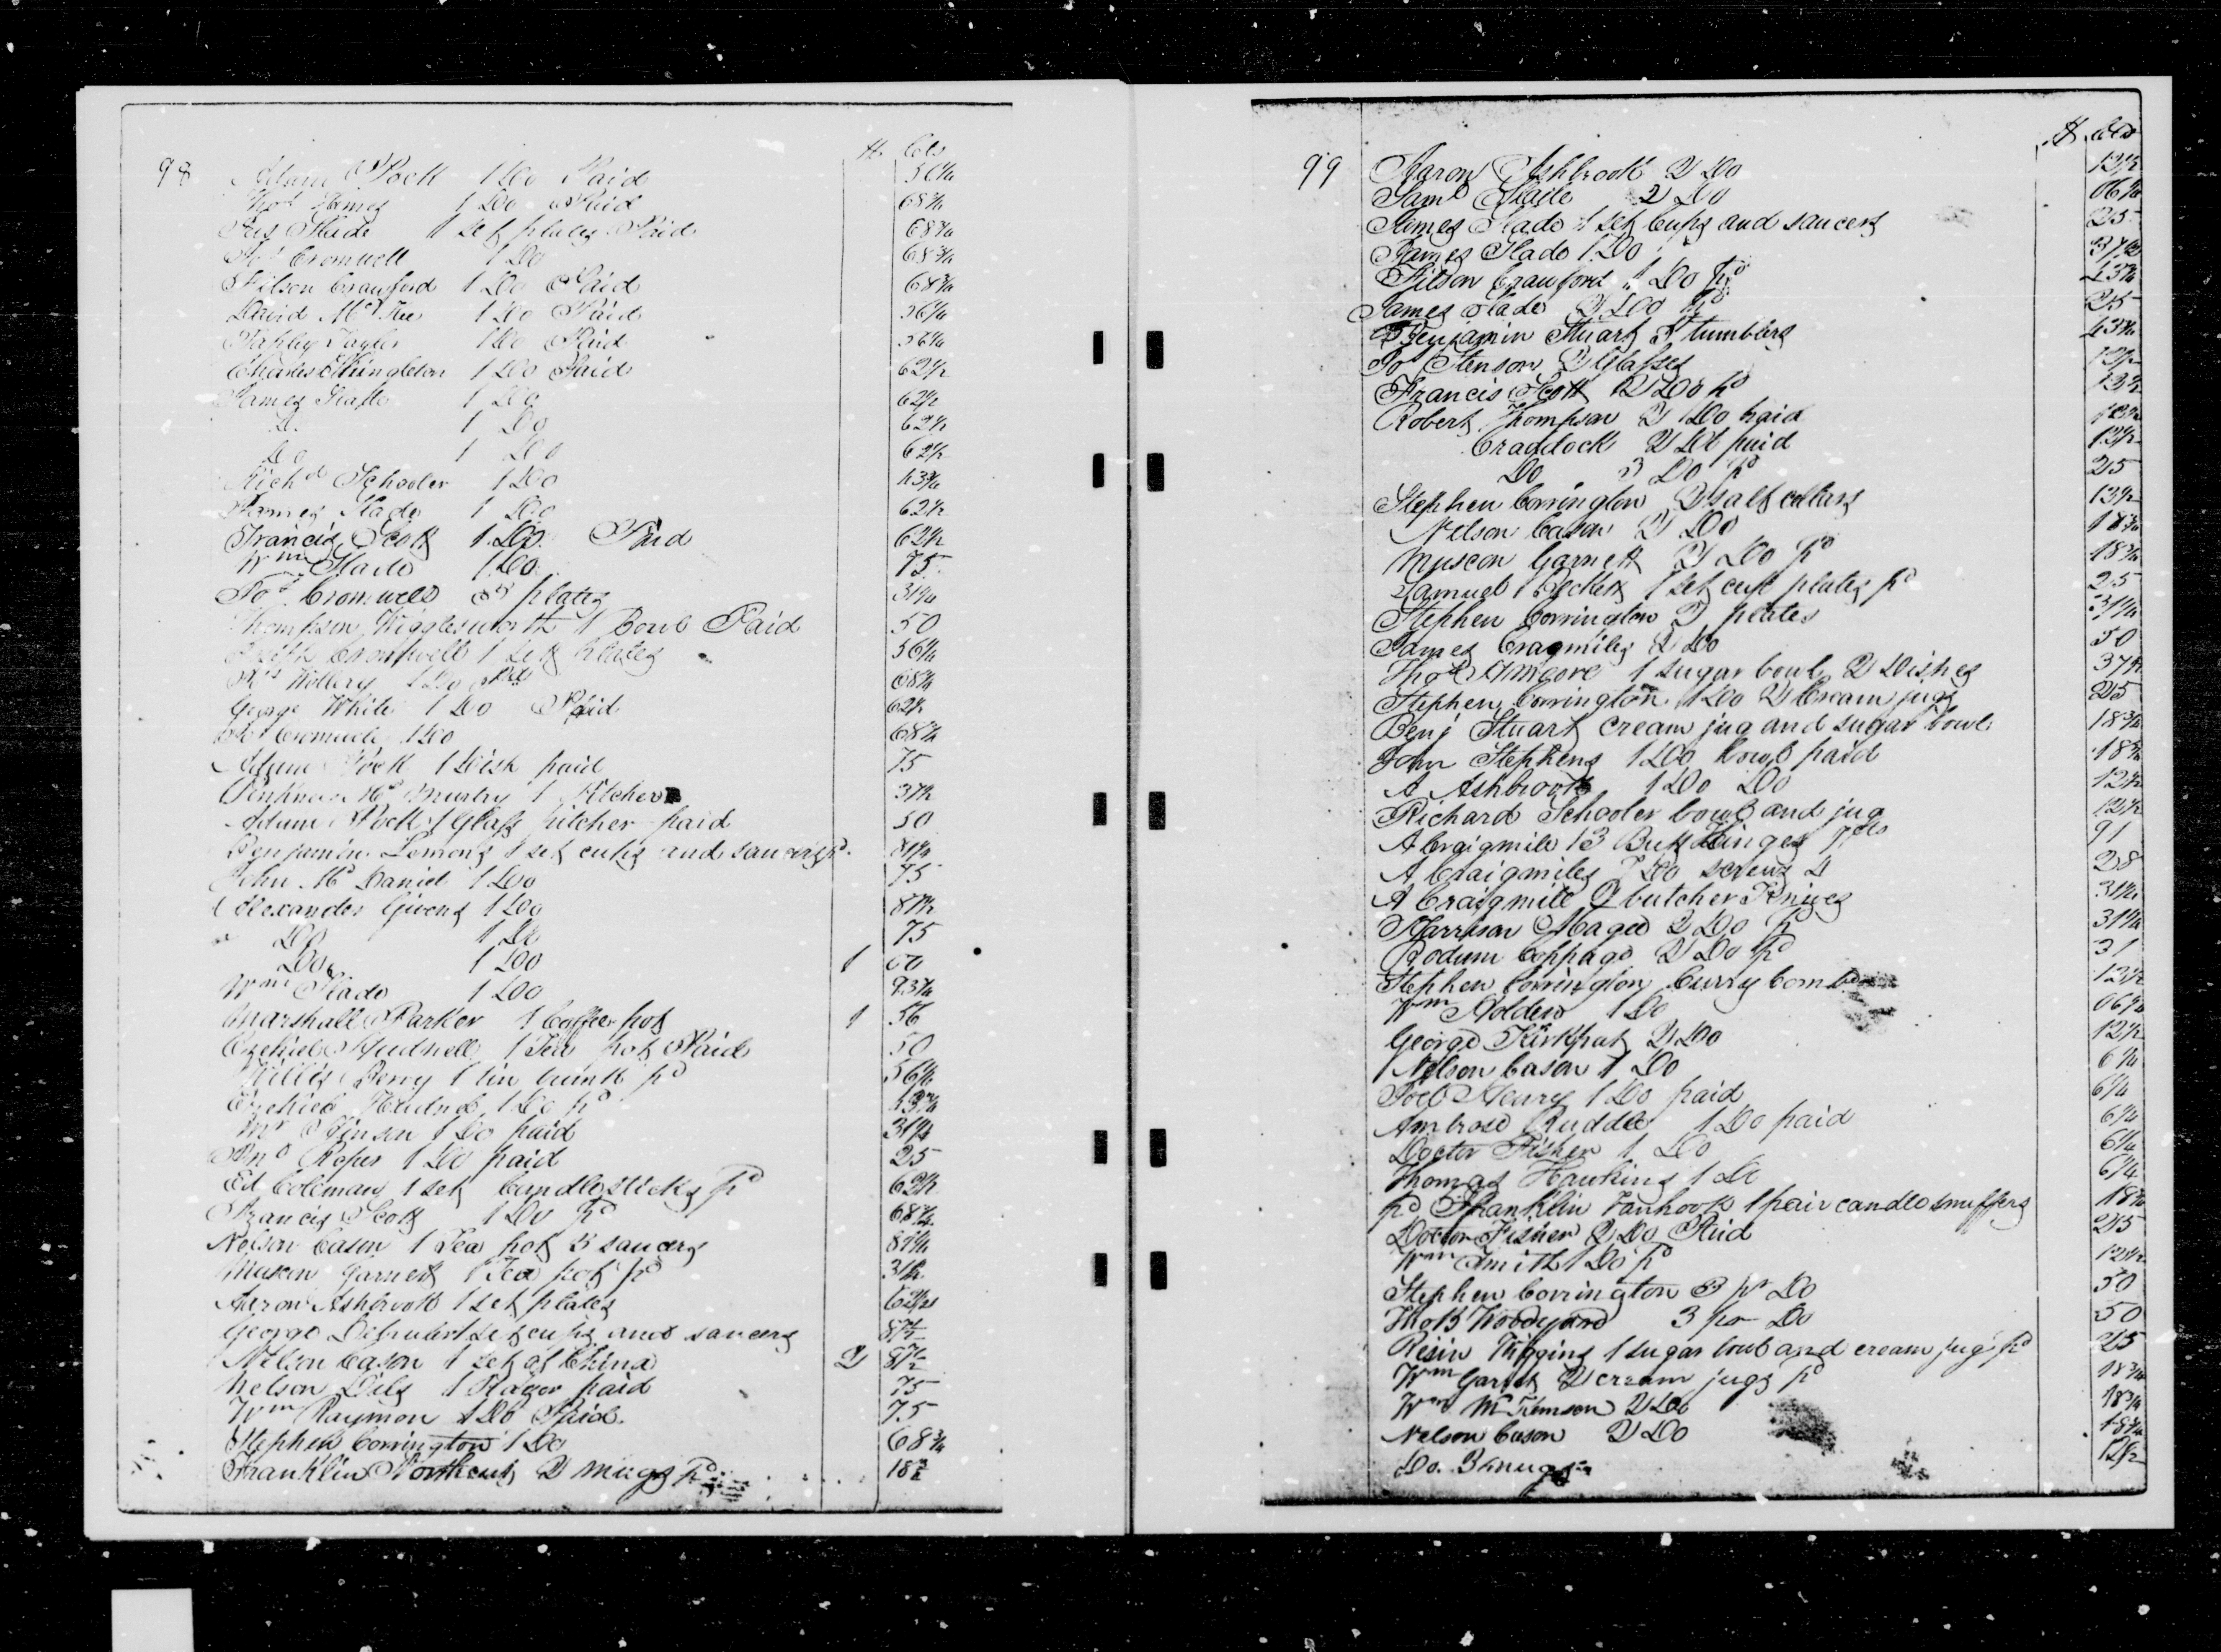 98 $ Cts
Adam Pock 1 Do Paid 56¼
Thos James 1 Do Paid 68¾
Jas Slade 1 set plates Paid 68¾
Jos Cromwell 1 Do 68¾
Wilson Crawford 1 Do Paid 68¾
David McKee 1 Do Paid 56¼
Tapley Taylor 1 Do Paid 56¼
Charles Shingleton 1 Do Paid 62½
James Slade 1 Do 62½
Do 1 Do 62½
Do 1 Do 62½
Richd Schooler 1 Do 43¾
James Slade 1 Do 62½
Francis Scott 1 Do Paid 62½
Wm Slade 1 Do 75
Jos Cromwell plates 31¼
Thompson Wigglesworth 1 Bowl Paid 50
Joseph Cromwell 1 set plates 56¼
Willery 1 Do Pd 68¾
George White 1 Do Paid 62½
Jos Cromwell 1 Do 68¾
Adam Pock 1 Dish paid 75
Mc Murtry 1 Pitcher 37½
Adam Pock 1 Glass pitcher paid 50
Benjamin Lemons 1 set cups and saucers pd 81¼
John McDaniel 1 Do 75
Alexander Givens 1 Do 87½
Do 1 Do 75
Do 1 Do 1 00
Wm Slade 1 Do 93¾
Marshall Parker 1 Coffee pot 1 56
Ezekiel Hudnell 1 Tea pot Paid 50
Willis Berry 1 tin trunk pd 56¼
Ezekiel Hudnel 1 Do pd 43¾
Mr Ginson 1 Do paid 31¼
Roper 1 Do paid 25
Ed Coleman 1 set Candlesticks pd 62½
Francis Scott 1 Do pd 68¾
Nelson Cason 1 Tea pot 3 saucers 81¼
Muscon Garnett 1 Tea pot pd 31¼
Aaron Ashbrook 1 set plates 62½
George set cups and saucers 87½
Nelson Cason 1 set of China 2 87½
Nelson Dils 1 Razor paid 75
Wm Raymon 1 Do Paid 75
Stephen Corrington 1 Do 68¾
Franklin Northcut 2 mugs pd 18¾
99 $ Cts
Aaron Ashbrook 2 Do 12½
Saml Slaile 2 Do 06¼
James Slade 1 set Cups and saucers 25
James Slade 1 Do 37½
Wilson Crawford 1 Do pd 43¾
James Slade 2 Do pd 25
Benjamin Stuart tumblers 43¾
Jos Stenson 2 Glasses 12½
Francis Scott 2 Do pd 12½
Robert Thompson 2 Do paid 12½
Craddock 2 Do paid 12½
Do 3 Do pd 25
Stephen Corrington 2 salt cellars 13½
Nelson Cason 2 Do 18¾
Muscon Garnett 2 Do pd 18¾
Samuel Pickett 1 set cup plates pd 25
Stephen Corrington 2 plates 31¼
James Cragmiles 2 Do 50
Thos Amoore 1 sugar bowl 2 Dishes 37½
Stephen Corrington 1 Do 2 Cream jugs 25
Benj Stuart cream jug and sugar bowl 18¾
John Stephens 1 Do bowl paid 18¾
A Ashbrook 1 Do Do 12½
Richard Schooler bowl and jug 12½
A Craigmile 13 Butt Hinges 7cts 91
A Craigmiles 7 Do screws 4 28
A Craigmile 2 butcher Knives 31¼
Harrison Magee 2 Do pd 31¼
Rodum Coppage 2 Do pd 31
Stephen Corrington Curry Comb 12½
Wm Holden 1 Do 06¼
George Kirkpat 2 Do 12½
Nelson Cason 1 Do 6¼
Joel Henry 1 Do paid 6¼
Ambrose Ruddle 1 Do paid 6¼
Docter Fisher 1 Do 6¼
Thomas Hawkins 1 Do 6¼
pd Franklin Vanhook 1 pair candle snuffers 18¾
Doctor Fisher 2 Do Paid 25
Wm Smith 1 Do pd 12½
Stephen Corrington 3 pr Do 50
Thos Woodyard 3 pr Do 50
Resin Wiggins 1 sugar bowl and cream jug pd 25
Wm Garnet 2 cream jugs pd 18¾
Wm McKemson 2 Do 18¾
Nelson Cason 2 Do 18¾
Do. 3 mugs 12½